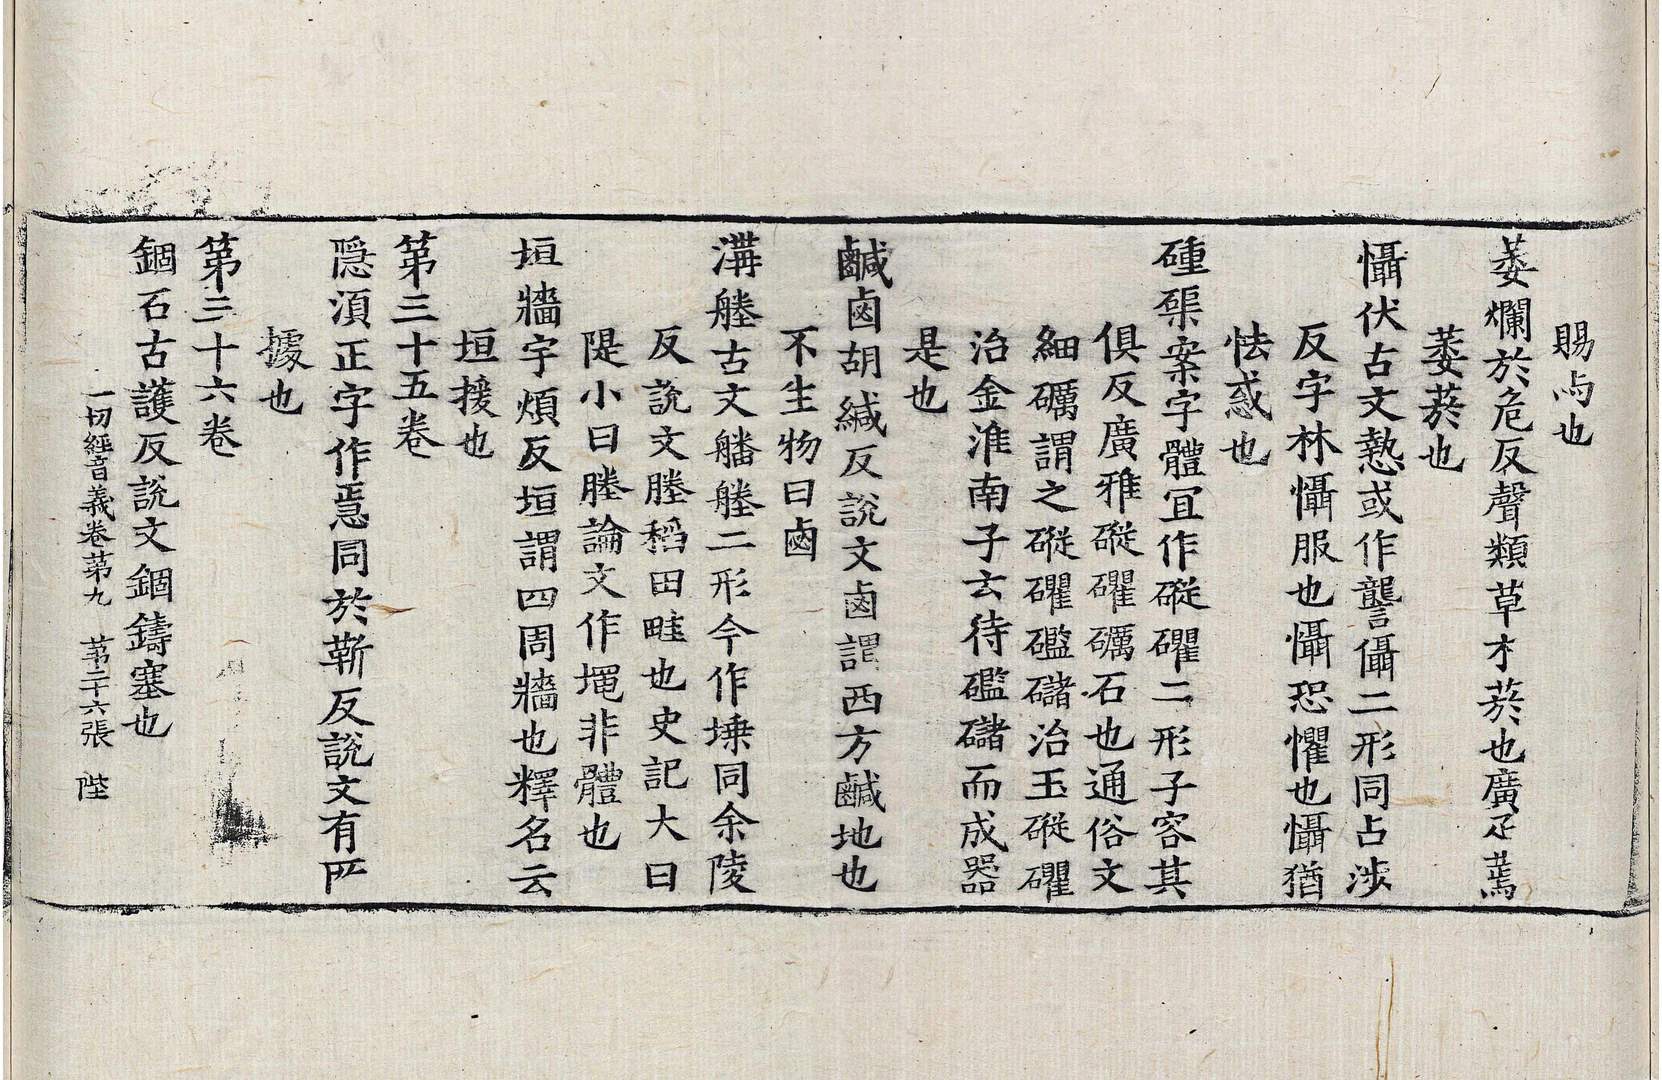 賜与也
萎爛於危反聲類草木菸也廣疋蔫
萎菸也
懾伏古文慹或作讋𢥠二形同占涉
反字林懾服也懾恐懼也懾猶
怯惑也
硾磲案字體冝作磫礭二形子容其
俱反廣雅磫礭礪石也通俗文
細礪謂之磫礭礛䃴治玉磫礭
治金淮南子云待礛䃴而成器
是也
鹹鹵胡緘反說文鹵謂西方鹹地也
不生物曰鹵
溝塍古文艠塍二形今作堘同余陵
反說文塍稻田畦也史記大曰
隄小曰塍論文作堩非體也
垣牆宇煩反垣謂四周牆也釋名云
垣援也
第三十五卷
隱湏正字作㥯同於靳反說文有所
據也
第三十六卷
錮石古護反說文錮鑄塞也
一切經音義卷第九 第二十六張 陛